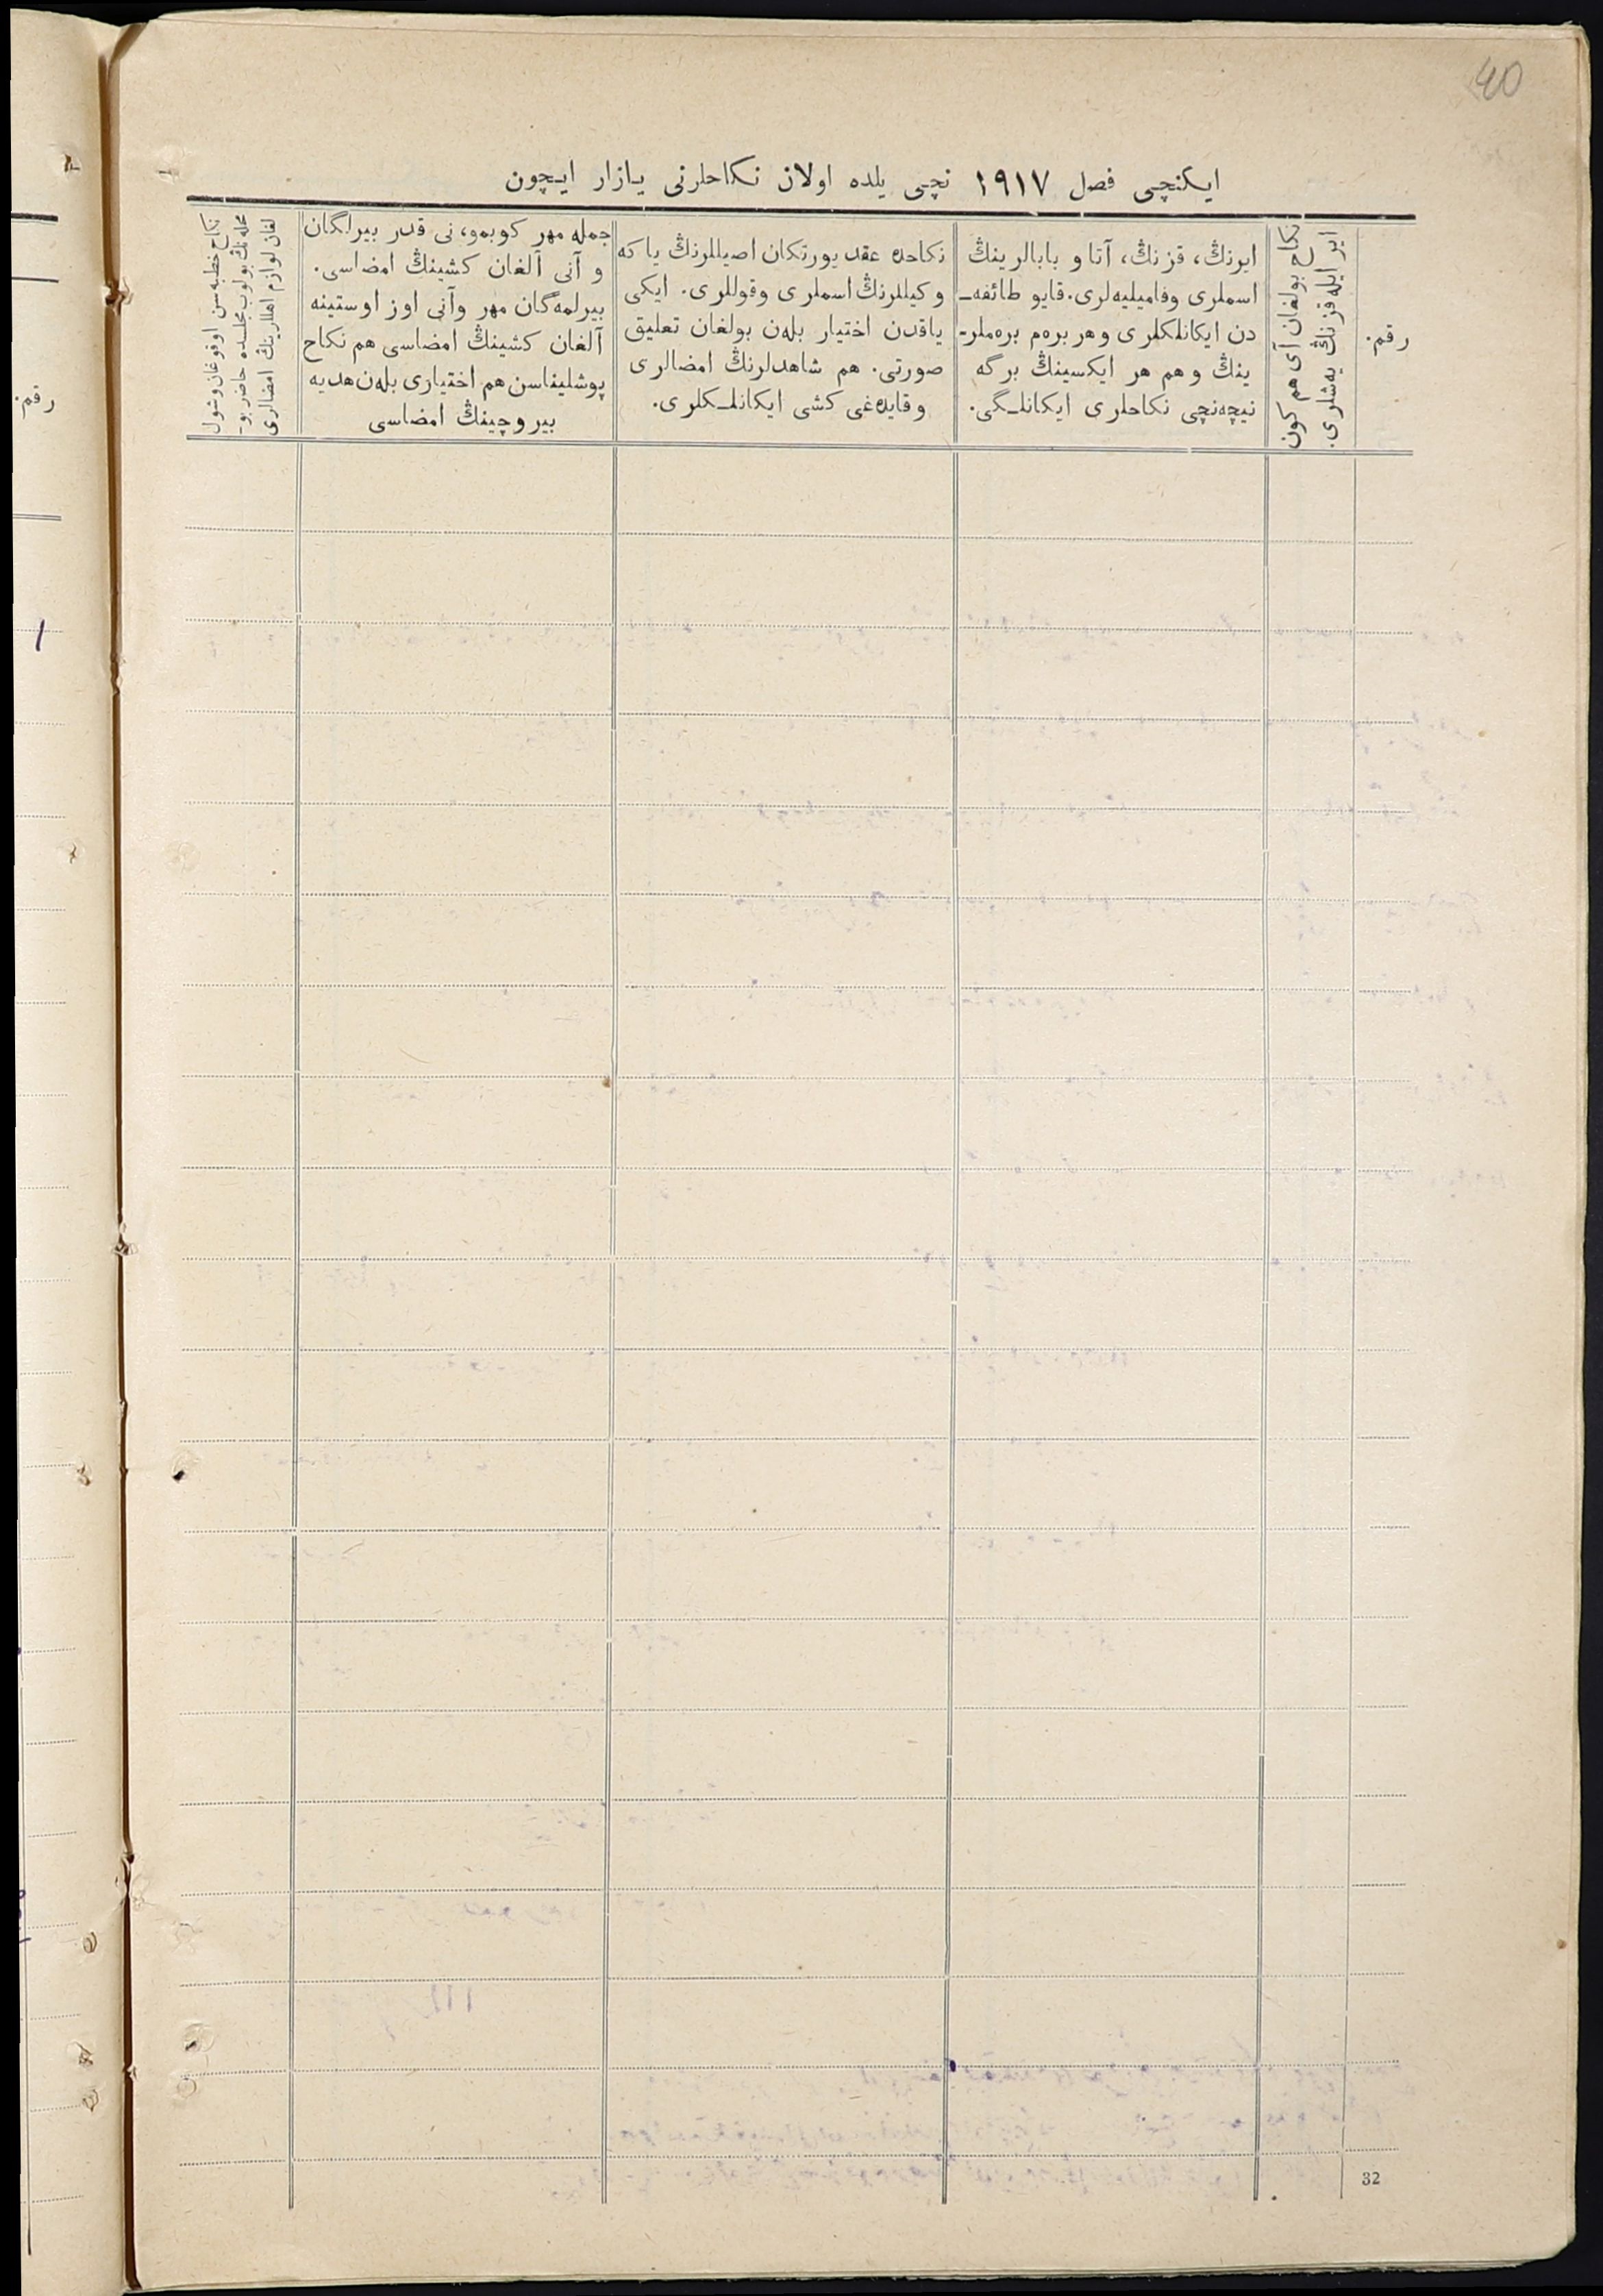 40
ایکنچی فصل ١٩١٧ نچی یلده اولان نکاحلرنی یازار ایچون
رقم.
نکاح بولغان آی هم کون
ایر ایله قزنڭ یه‌شلری.
ایرنڭ، قزنڭ، آتا و بابالرینڭ
اسملری وفامیلیه‌لری. قایو طائفه‌ـ
دن ایکانلکلری و هر بره‌م بره‌ملر-
ینڭ و هم هر ایکسینڭ برگه
نیچه‌نچی نکاحلری ایکانلـگی.
نکاحده عقد یورتکان اصیللرنڭ یا که
وکیللرنڭ اسملری وقوللری. ایکی
یاقدن اختیار بله‌ن بولغان تعلیق
صورتی. هم شاهدلرنڭ امضالری
وقایده‌غی کشی ایکانلـکلری.
جمله مهر کوبمو، نی قدر بیرلگان
و آنی آلغان کشینڭ امضاسی.
بیرلمه‌گان مهر وآنی اوز اوستینه
آلغان کشینڭ امضاسی هم نکاح
پوشلیناسن هم اختیاری بله‌ن هدیه
بیروچینڭ امضاسی
نکاح خطبه‌سن اوقوغان وشول
محله‌نڭ بولوب مجلسده حاضر بو-
لغان لوازم اهللارینڭ امضالری
رقم.
١
32